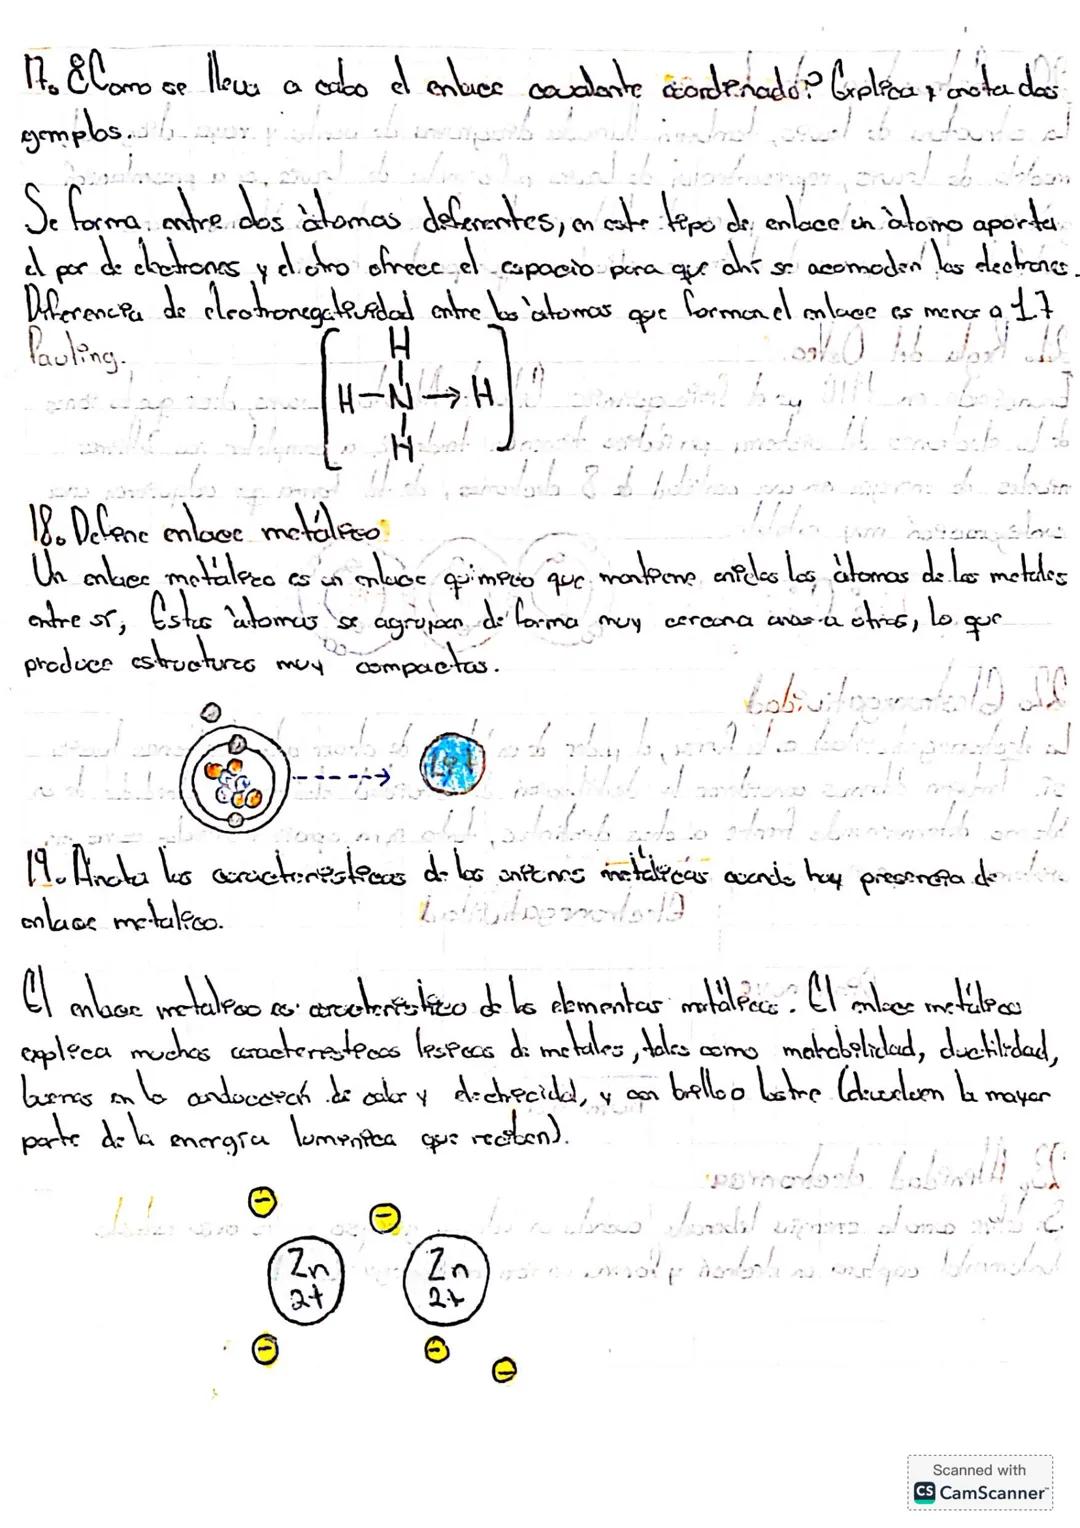 17. ¿Como se lleva a cabo el enlace covalante coordenado? Explica y anota dos
ejemplos.
Se forma entre dos átomos deferentes, en este tipo de enlace un átomo aporta
el par de electrones y el otro ofrece el espacio para que ahí se acomoden los electrones.
Diferencia de electronegatividad entre los átomos que forman el enlace es menor a 1.7
Pauling.
H
H-N→H
H
18. Define enlace metálico
Un enlace metálico es un enlace químico que mantiene unidos los átomos de los metales
entre sí, Estos átomos se agrupan de forma muy cercana unos a otros, lo que
produce estructuras muy compactas.
19. Anota las características de las uniones metálicas cuando hay presencia de
enlace metalico.
El enlace metalico es caracteristico de los elementos metálicos. El enlace metálico
explica muchas caracteristicas físicas de metales, tales como maleabilidad, ductilidad,
buenos en la conducción de calor y electricidad, y con brillo o lustre (devuelven la mayor
parte de la energía lumínica que reciben).
- -
Zn Zn
2+ 2+
- - -
Scanned with
CS CamScanner